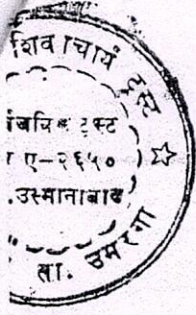 शिवाचार्य ट्रस्ट
ट्रस्ट
ए-२६५०
.उस्मानाबाद
ता. उमरगा